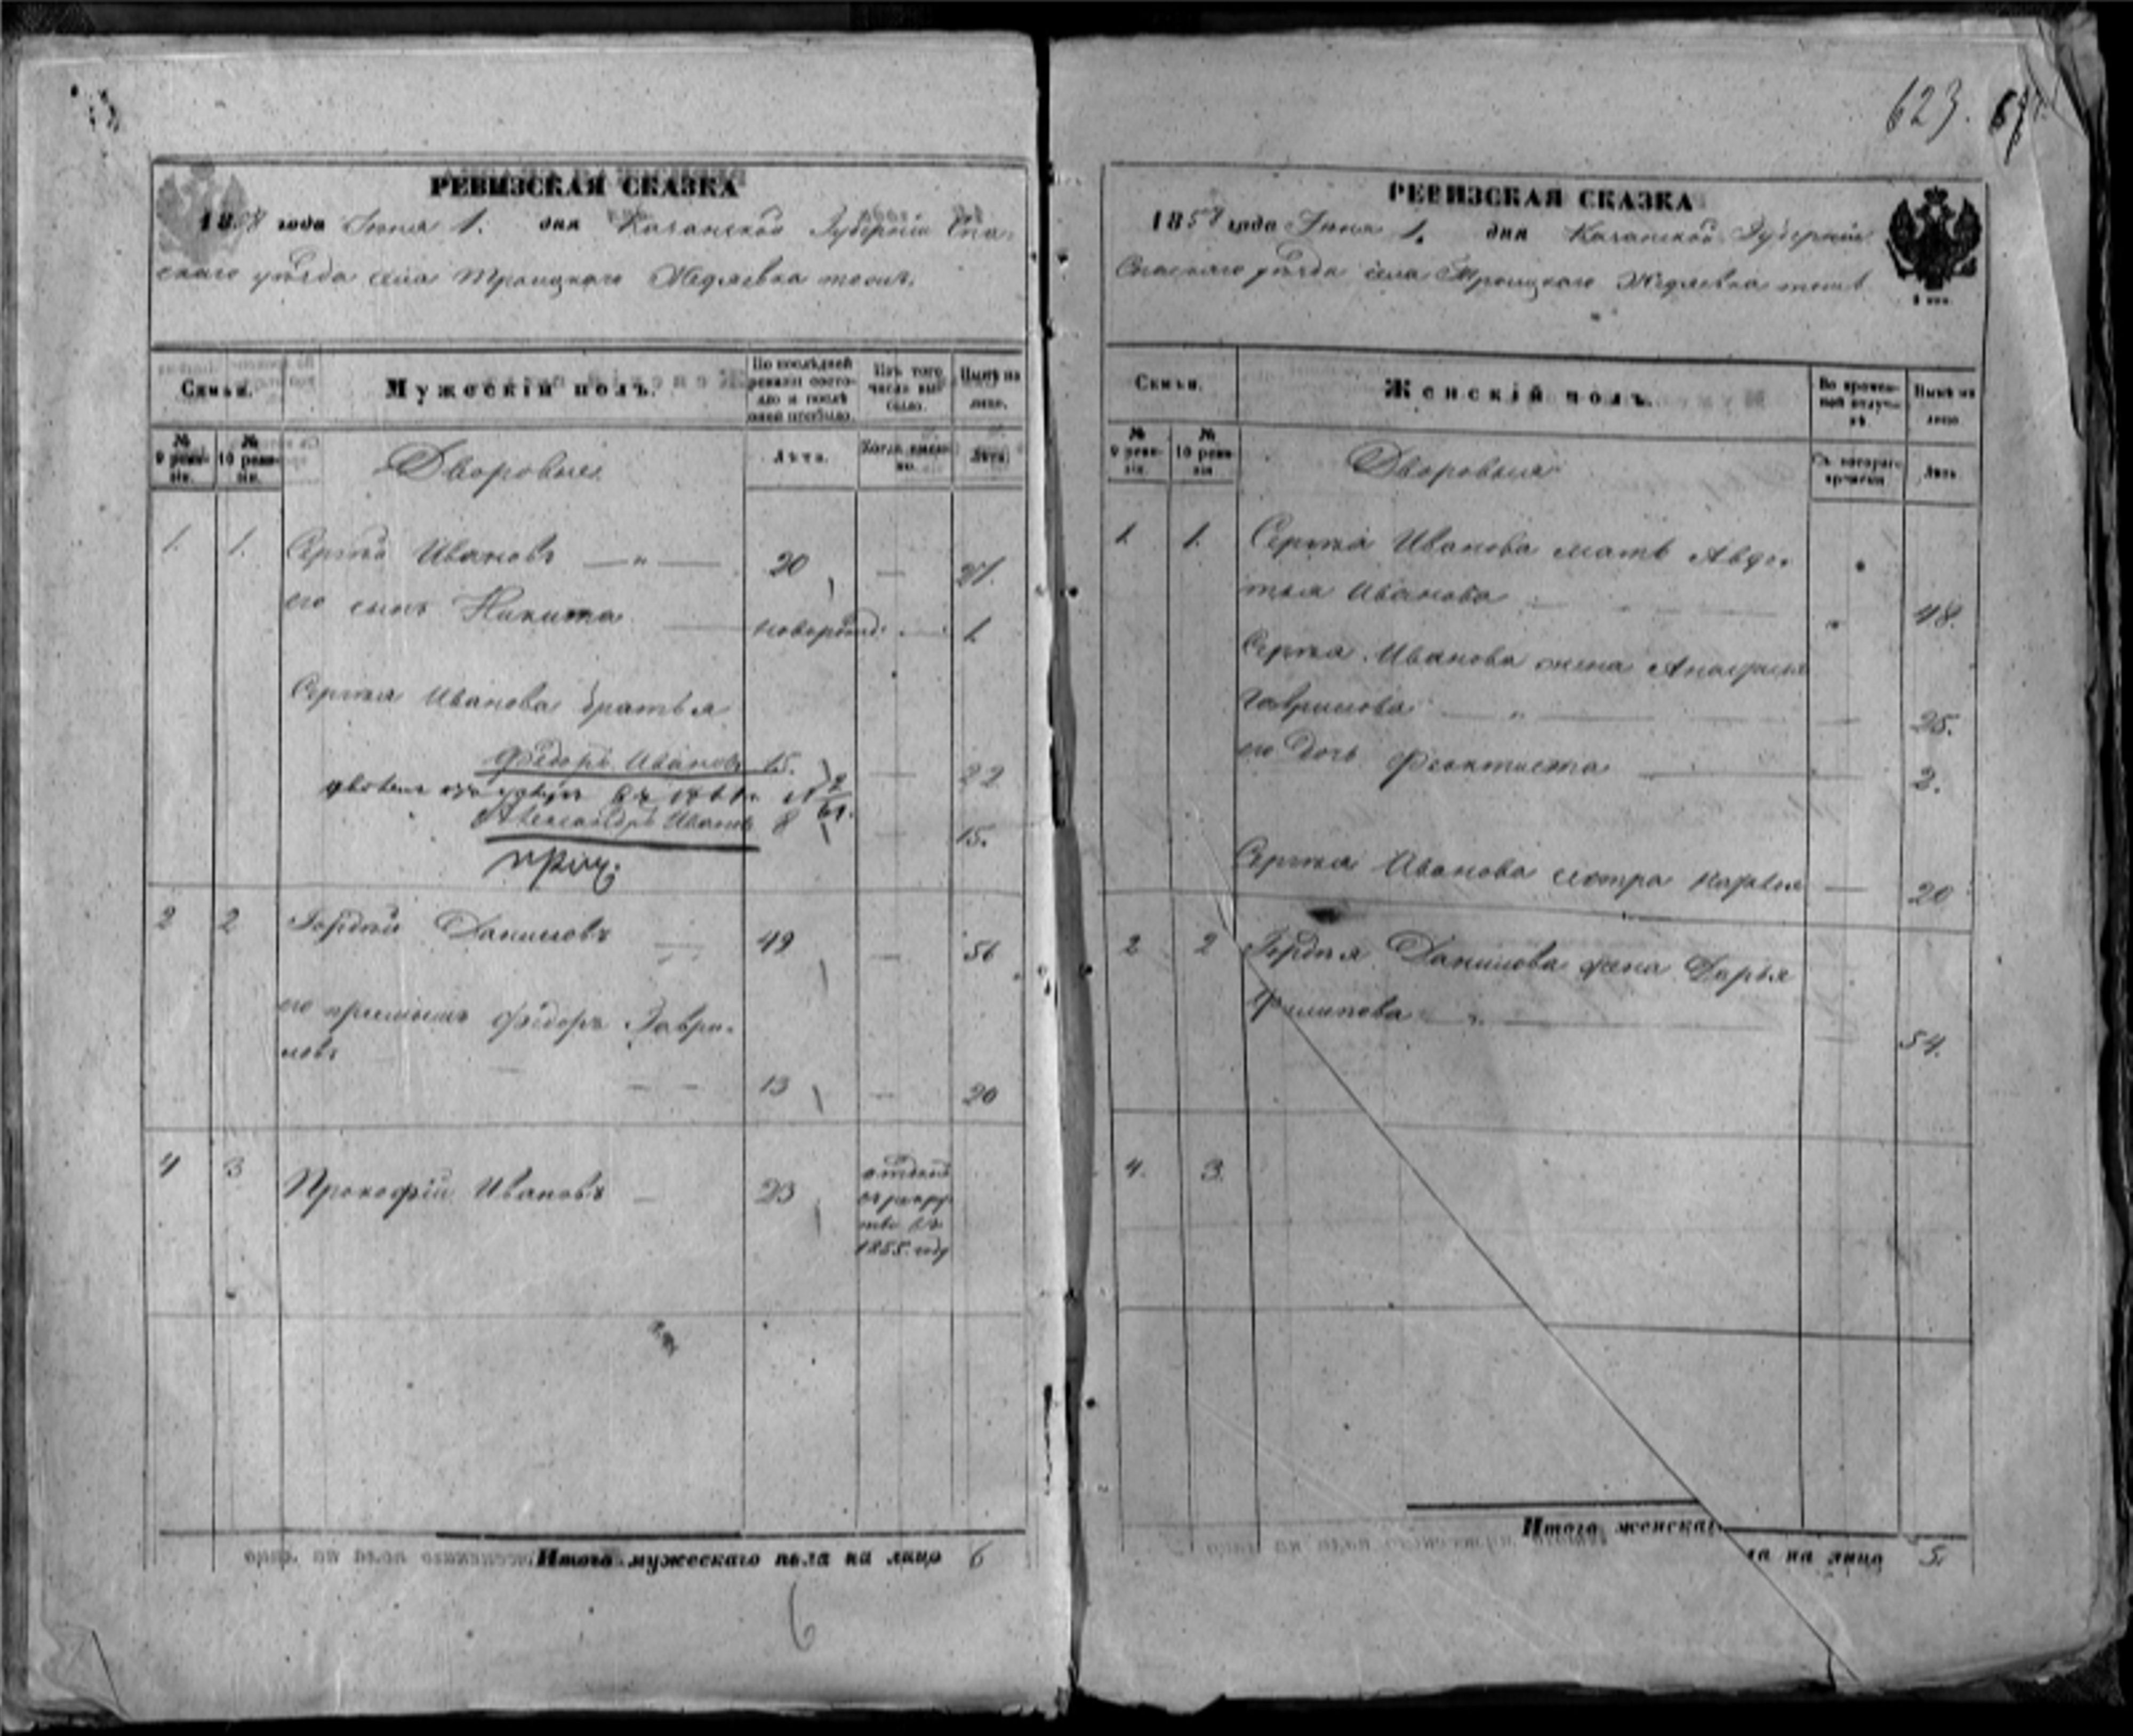 РЕВИЗСКАЯ СКАЗКА
1858 года Іюня 1. дня Казанской Губерніи Спа-
скаго уѣзда села Троицкаго Жедяевка тожъ.
Семьи.
Мужескій полъ.
По послѣдней ревизіи состояло и послѣ оной прибыло.
Изъ того числа выбыло.
Нынѣ на лицо.
№ 9 ревизіи.
№ 10 ревизіи.
Лѣта.
Когда именно.
Лѣта.
Дворовые
1. 1. Сергѣй Ивановъ — " — 20 — 27.
его сынъ Никита новорожд. — 1
Сергѣя Иванова братья
Федоръ Ивановъ 15. — 22
Александръ Ивановъ 8 — 15.
2 2 Гордѣй Даниловъ 49 — 56
его приемышъ Федоръ Гаври-
ловъ
13 — 20
4 3 Прокофій Ивановъ — 23 отданъ
въ рекру
тво въ
1855. году
Итого мужескаго пола на лицо 6
6
623.
РЕВИЗСКАЯ СКАЗКА
1858 года Іюня 1. дня Казанской Губерніи
Спаскаго уѣзда села Троицкаго Жедяевка тожъ
Семьи.
Женскій полъ.
Во временной отлучкѣ.
Нынѣ на лицо
№ 9 ревизіи.
№ 10 ревизіи
Съ котораго времени
Лѣта.
Дворовыя
1. 1. Сергѣя Иванова мать Авдо-
тья Иванова 48.
Сергѣя Иванова жена Анастасья
Гаврилова — " — 25.
его дочь Феоктиста — 2.
Сергѣя Иванова сестра Марья — 20
2 2 Гордѣя Данилова жена Дарья
Филипова 54.
4. 3.
Итого женскаг
ла на лицо 5.